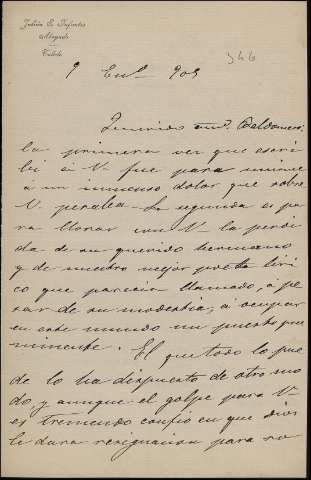 Julián E. Infantes
Abogado
Toledo
346
9 En.º 905
Querido am.º Baldomero:
la primera vez que escri
bí á V. fue para unirme
á un inmenso dolor que sobre
V. pesaba. La segunda es pa
ra llorar con V. la perdi
da de su querido hermano
y de nuestro mejor poeta liri
co que parecia llamado, a pe
sar de su modestia, á ocupar
en este mundo un puesto pre
eminente. El que todo lo pue
de lo ha dispuesto de otro mo
do y aunque el golpe para V.
es tremendo confio en que Dios
le dara resignacion para so